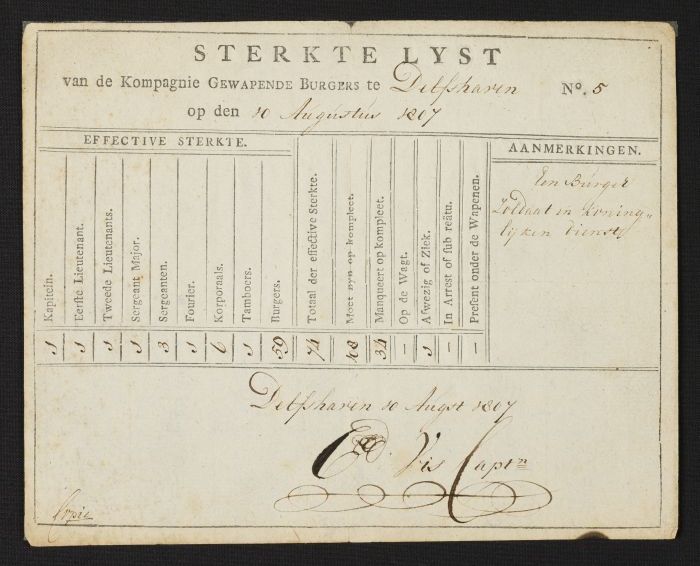 STERKTE LYST
van de Kompagnie GEWAPENDE BURGERS te Delfshaven Nº. 5
op den 10 Augustus 1807
EFFECTIVE STERKTE.
AANMERKINGEN.
Kapitein.
Eerſte Lieutenant.
Tweede Lieutenants.
Sergeant Major.
Sergeanten.
Fourier.
Korporaals.
Tamboers.
Burgers.
Totaal der effective Sterkte.
Moet zyn op kompleet.
Manqueert op kompleet.
Op de Wagt.
Afwezig of Ziek.
In Arrest of ſub reätu.
Preſent onder de Wapenen.
Een Burger
Zoldaat in Koning„
lijken dienst
1 1 1 1 3 1 6 1 59 74 108 34 – 1 – –
Delfshaven 10 Augst 1807
Vis Captn
Copie